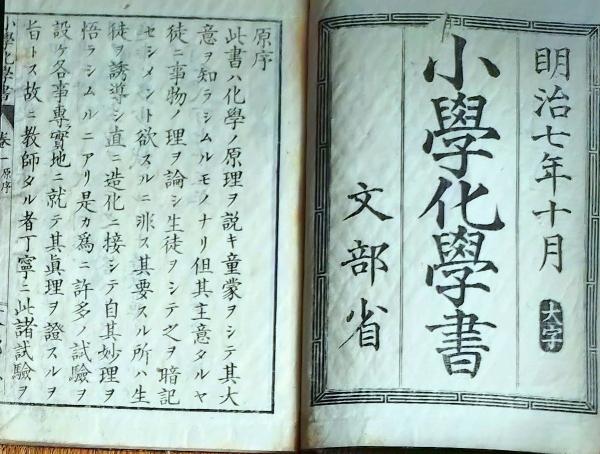 明治七年十月
大字
小學化學書
文部省
原序
此書ハ化學ノ原理ヲ説キ童蒙ヲシテ其大
意ヲ知ラシムルモノナリ但其主意タルヤ
徒ニ事物ノ理ヲ論シ生徒ヲシテ之ヲ暗記
セシメント欲スルニ非ス其要スル所ハ生
徒ヲ誘導シ直ニ造化ニ接シテ自其妙理ヲ
悟ラシムルニアリ是カ爲ニ許多ノ試驗ヲ
設ケ各事專實地ニ就テ其眞理ヲ證スルヲ
旨トス故ニ教師タル者丁寧ニ此諸試驗ヲ
小學化學書
卷一原序